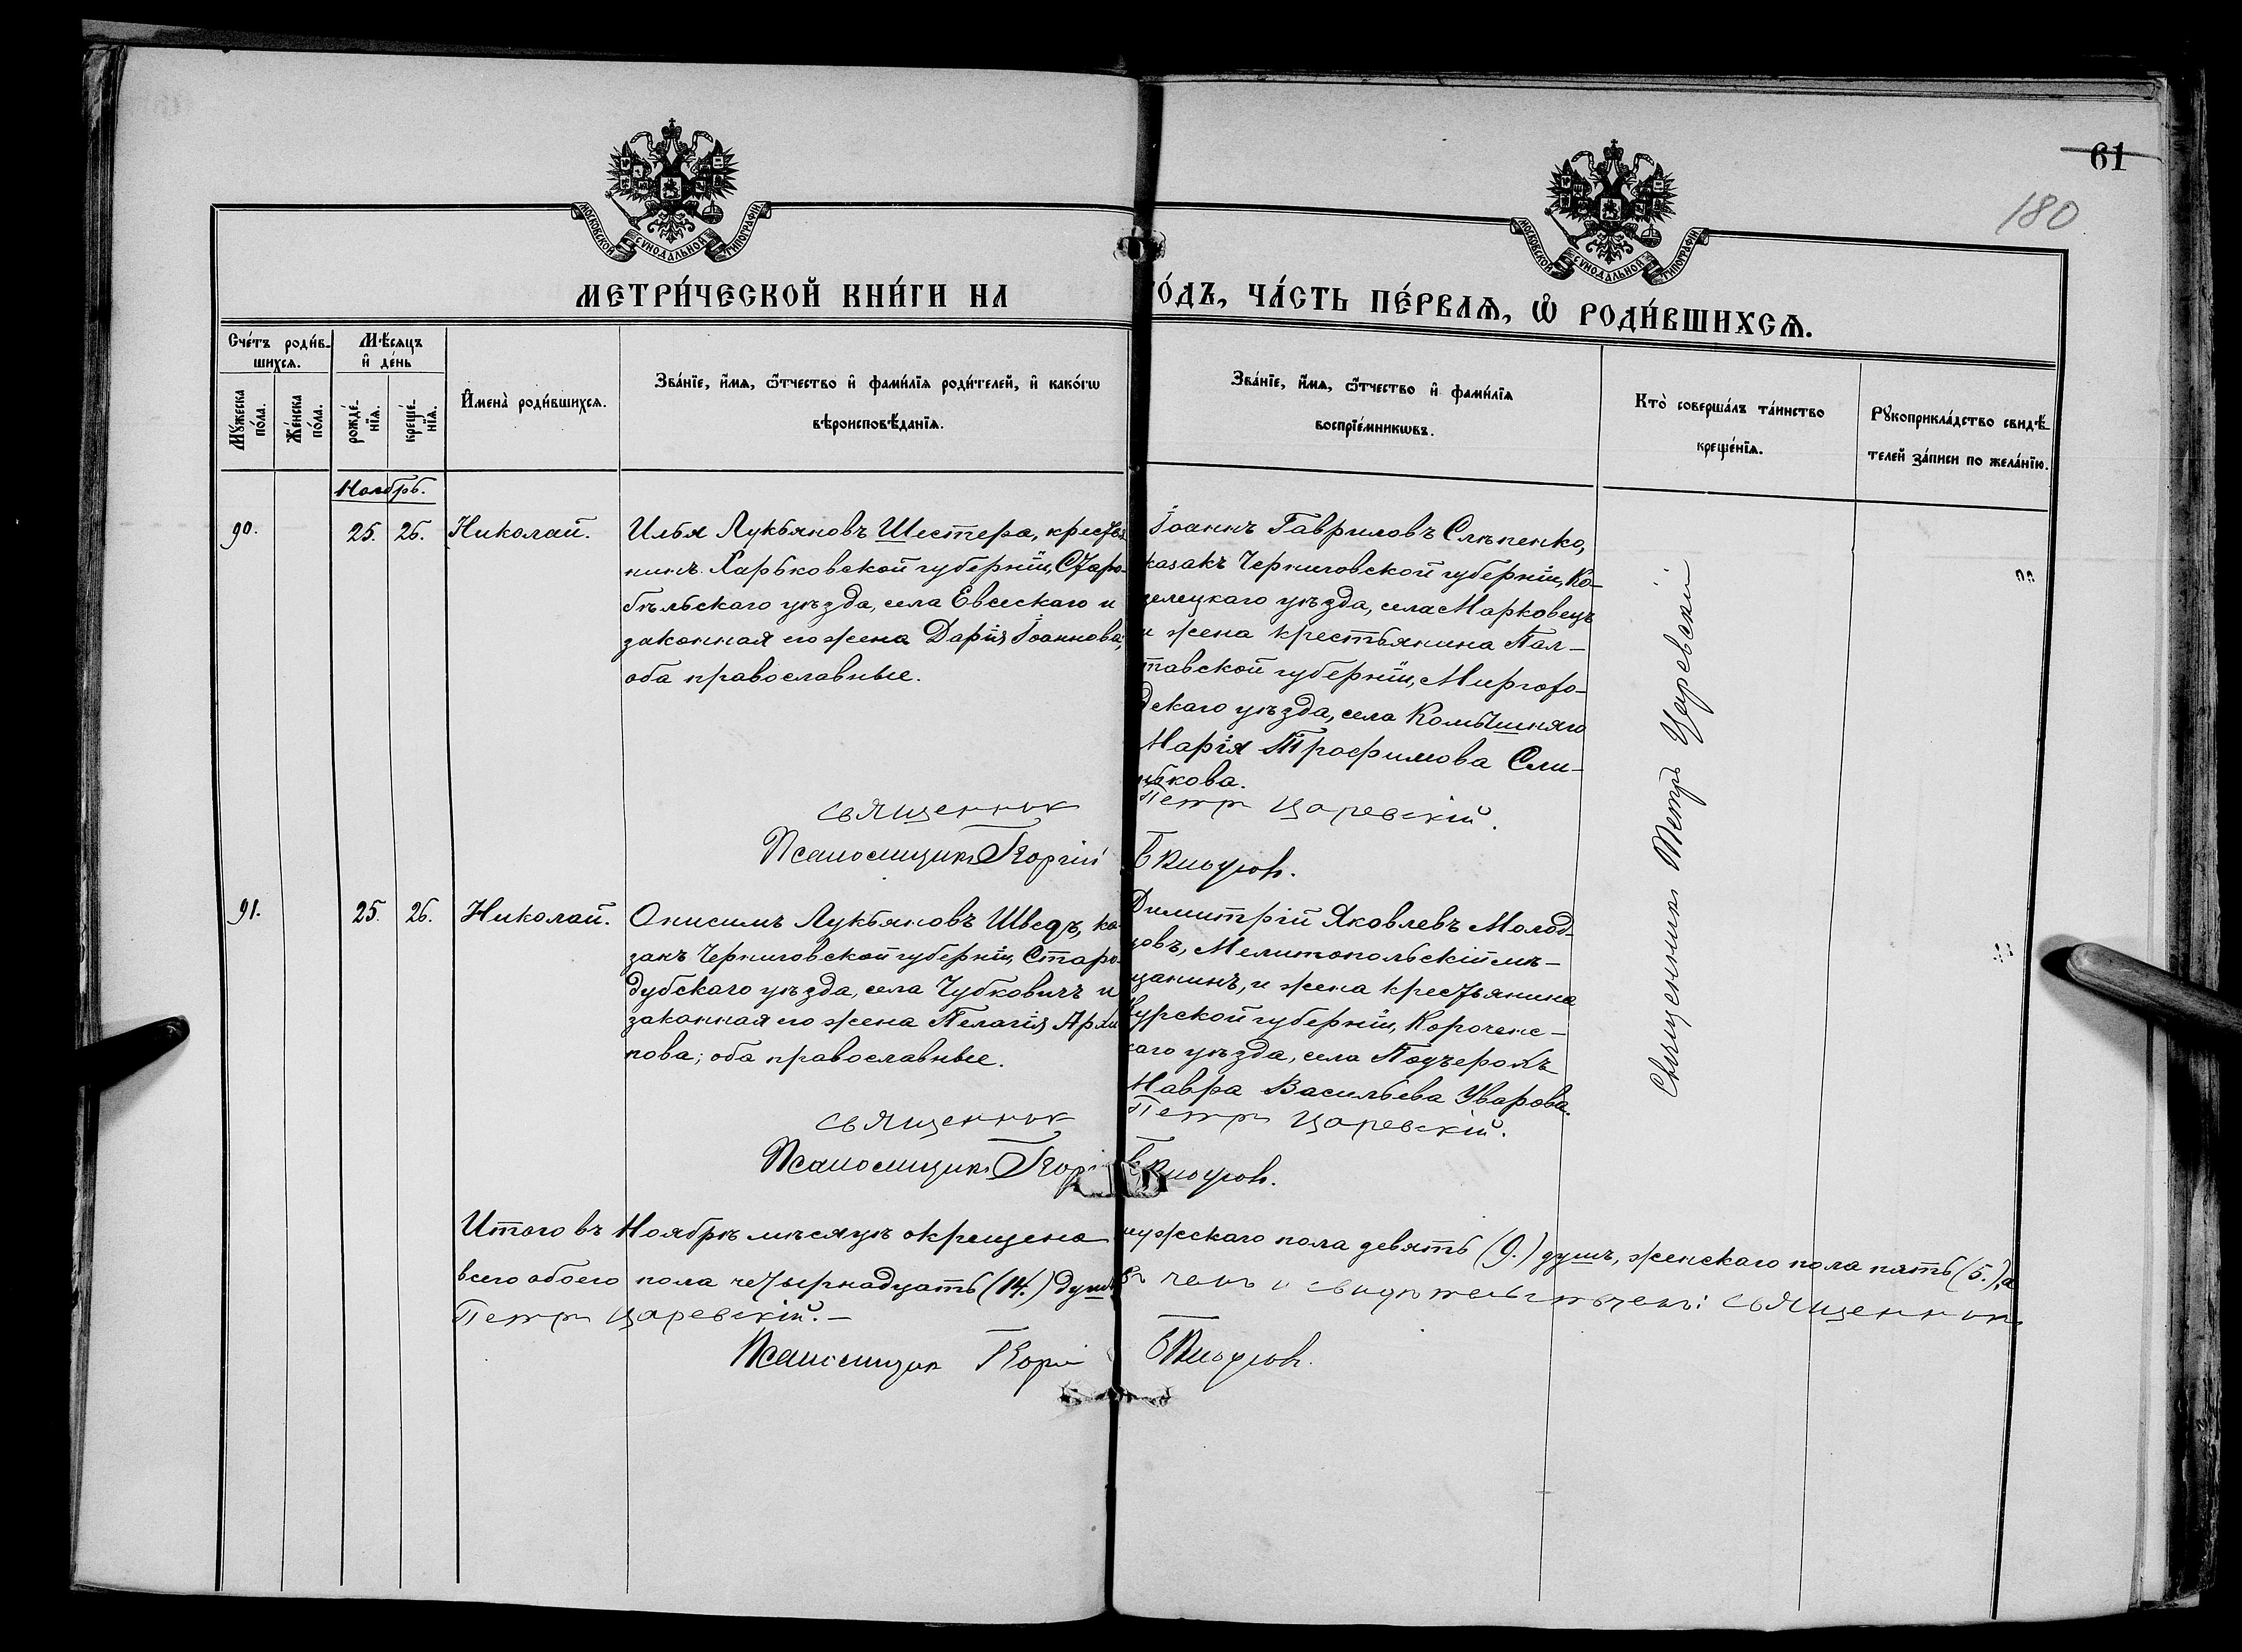 61
180
МОСКОВСКОЙ СѴНОДАЛЬНОЙ ТИПОГРАФІИ
МОСКОВСКОЙ СѴНОДАЛЬНОЙ ТИПОГРАФІИ
МЕТРИ́ЧЕСКОЙ КНИ́ГИ НА
ÓДЪ, ЧА́СТЬ ПЕ́РВАѦ, Ѡ҆ РОДИ́ВШИХСѦ.
Сче́тъ роди́в-
шихсѧ.
Мꙋ́жеска по́ла.
Же́нска по́ла.
Мѣ́сѧцъ
и҆ де́нь
рожде́-нїѧ.
креще́-нїѧ.
И҆мена̀ роди́вшихсѧ.
Зва́нїе, и҆́мѧ, ѻ҆́тчество и҆ фами́лїѧ роди́телей, и҆ како́гѡ
вѣроисповѣ́данїѧ.
Зва́нїе, и҆́мѧ, ѻ҆́тчество и҆ фами́лїѧ
воспрїе́мникѡвъ.
Кто̀ соверша́лъ та́инство
креще́нїѧ.
Рꙋкоприкла́дство свидѣ́-
телей за́писи по жела́нїю.
Ноябрь.
90.
25.
26.
Николай.
Илья Лукьяновъ Шестера, крестья
нинъ Харьковской губерніи, Старо-
бѣльскаго уѣзда, села Евсескаго и
законная его жена Дарія Іоаннова;
оба православные.
Іоаннъ Гавриловъ Слѣпенко,
казакъ Черниговской губерніи, Ко-
зелецкаго уѣзда, села Марковецъ
и жена крестьянина Пал-
тавской губерніи, Миргоро-
дскаго уѣзда, села Комышняго
Марія Трофимова Сли-
нькова.
священник Петръ Царевскій.
Псаломщикъ
91.
25.
26.
Николай.
Онисимъ Лукьяновъ Шведъ, ка
закъ Черниговской губерніи, Старо-
дубскаго уѣзда, села Чубковичъ и
законная его жена Пелагія Архи
пова; оба православные.
Димитрій Яковлевъ Молод-
цовъ, Мелитопольскій мѣ-
щанинъ, и жена крестьянина
Курской губерніи, Короченс-
каго уѣзда, села Подъерохъ
Мавра Васильева Уварова.
священник Петръ Царевскій.
Псаломщикъ
Священникъ Петръ Царевскій
Итого въ Ноябрѣ мѣсяцѣ окрещено мужскаго пола девять (9.) душъ, женскаго пола пять (5.), а
всего обоего пола четырнадцать (14.) душъ въ чемъ и свидѣтельствуемъ: священникъ
Петръ Царевскій. –
Псаломщик